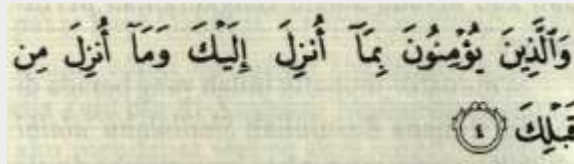 وَٱلَّذِينَ يُؤْمِنُونَ بِمَآ أُنزِلَ إِلَيْكَ وَمَآ أُنزِلَ مِن
قَبْلِكَ ٤